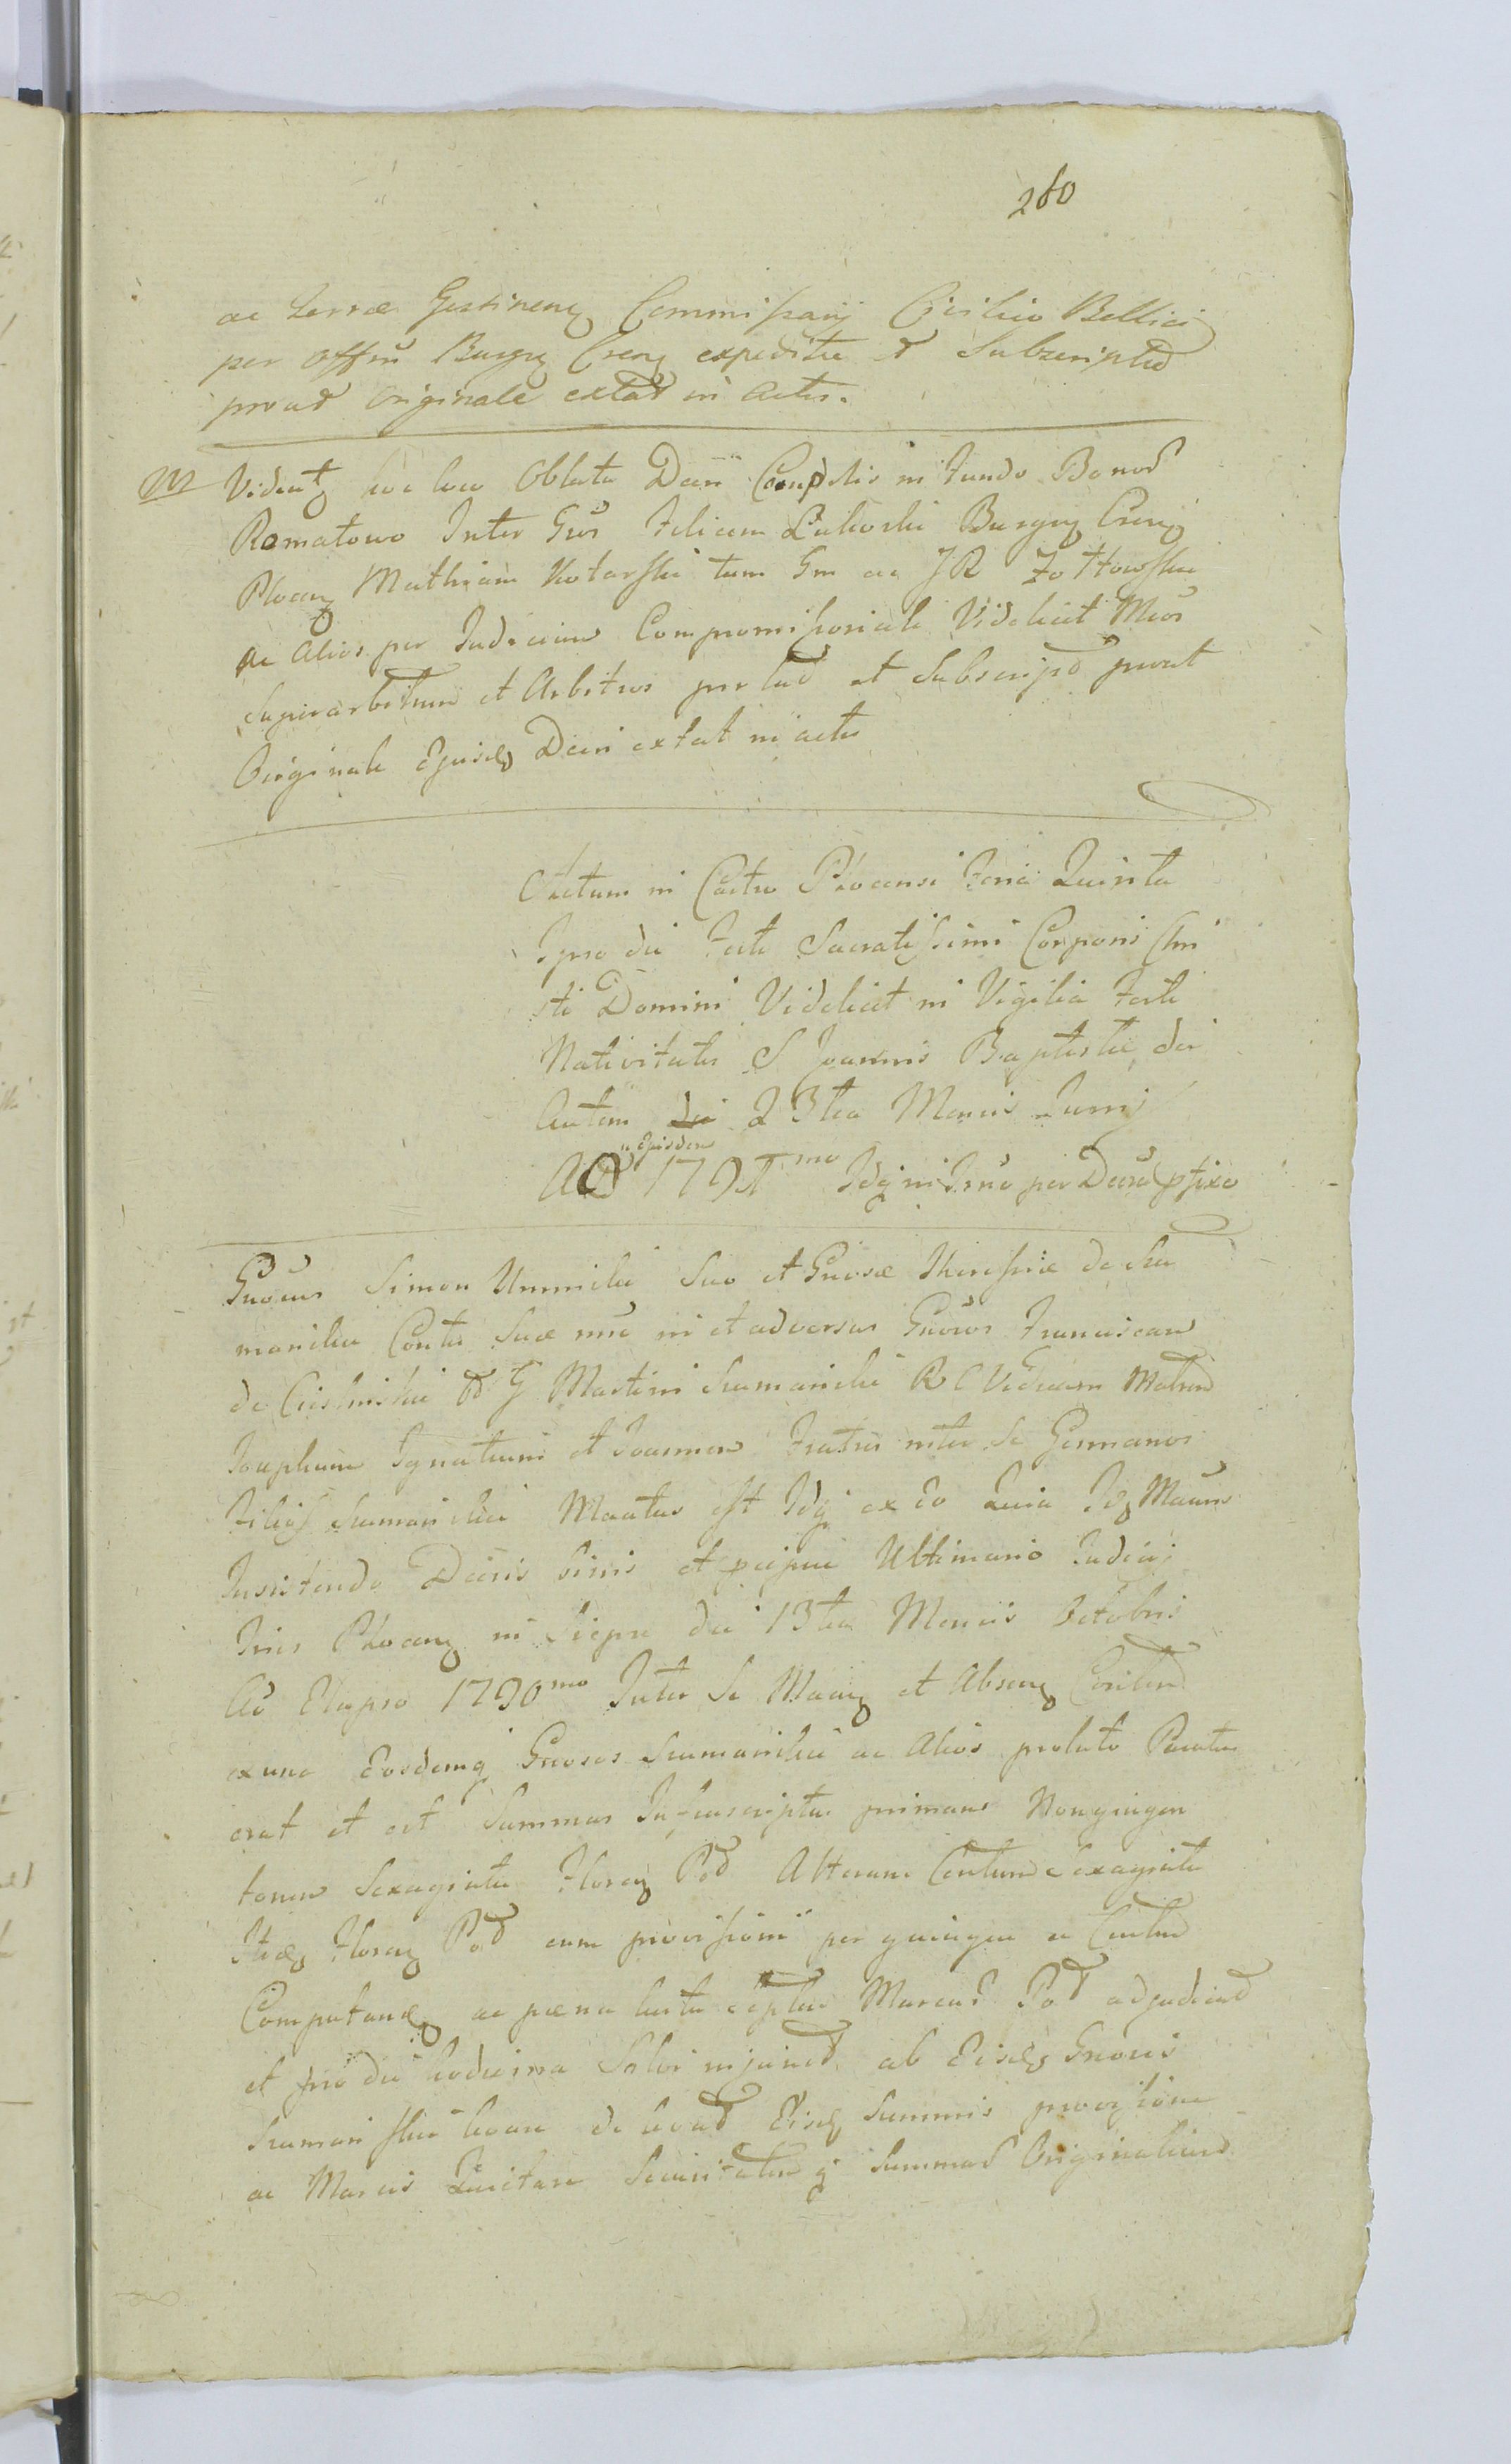 260
ac terræ Gostinenꝫ Commissarÿ Civilico Bellici
per Offm̄ Burgꝫ Crenꝫ expeditæ et Subscriptæ
prout Originale extat in Actis.
M Videatꝫ hoc loco Oblata Dēti Compslis in fundo Bonor
Romatowo Inter Gsos Felicem Lukoski Burgꝫ Crenꝫ
Plocenꝫ Mathiam Kotarski tum Gm ac JR Żottowskie
ac Alios per Judicium Compromissoriale Videlicet Mcos
Superarbitrum et Arbitros per lat et Subscript prout
Originale Ejusdꝫ Dcreti extat in actis
Actum in Castro Plocensi Feria Quinta
Ipso die Festi Sacratissimi Corporis Chri
sti Domini Videlicet in Vigilia Festi
Nativitatis S Joannis Baptistæ die
Autem die 23tia Mensis Junij
Ejusdem
AD 1791mo Idqꝫ in Trno per Decrū pfixo
Gnosus Simon Umiński Suo et Gnosæ Theressiæ de Szu
mańskie Contis Suæ nnē in et adversus Gnosos Franciscam
de Ciesliński G Martini Szumański RC Viduam Matrem
Josephum Ignatium et Joannem Fratres inter Se Germanos
Filios Szumańskie Mantus est Idqꝫ ex eo Quia Idꝫ Mauns
Insistendo Decris Suis et pcipue Ultimario Judicij
Trris Plocenꝫ in Sierpce die 13tia Mensis Octobris
AD Elapso 1790mo Inter Se Manꝫ et Absenꝫ Contum
ex una Eosdemqꝫ Gnosos Szumańskie ac Alios prolato Paratus
erat et est Summas Infrascriptas primam Nongingen
torum Sexaginta Florenꝫ Pol Alteram Centum Sexaginta
Itidꝫ Florenꝫ Pol cum provisioni per quinque a Centum
Computandꝫ ac pæna luita Septus Marcar Pol adjudicat
et pro die hodierna Solvi injunct ab Eisdꝫ Gnosis
Szumańskie levare de levat Eisdꝫ Summis provisione
ac Marcis Quietare Securitatem qꝫ Summar Originalium